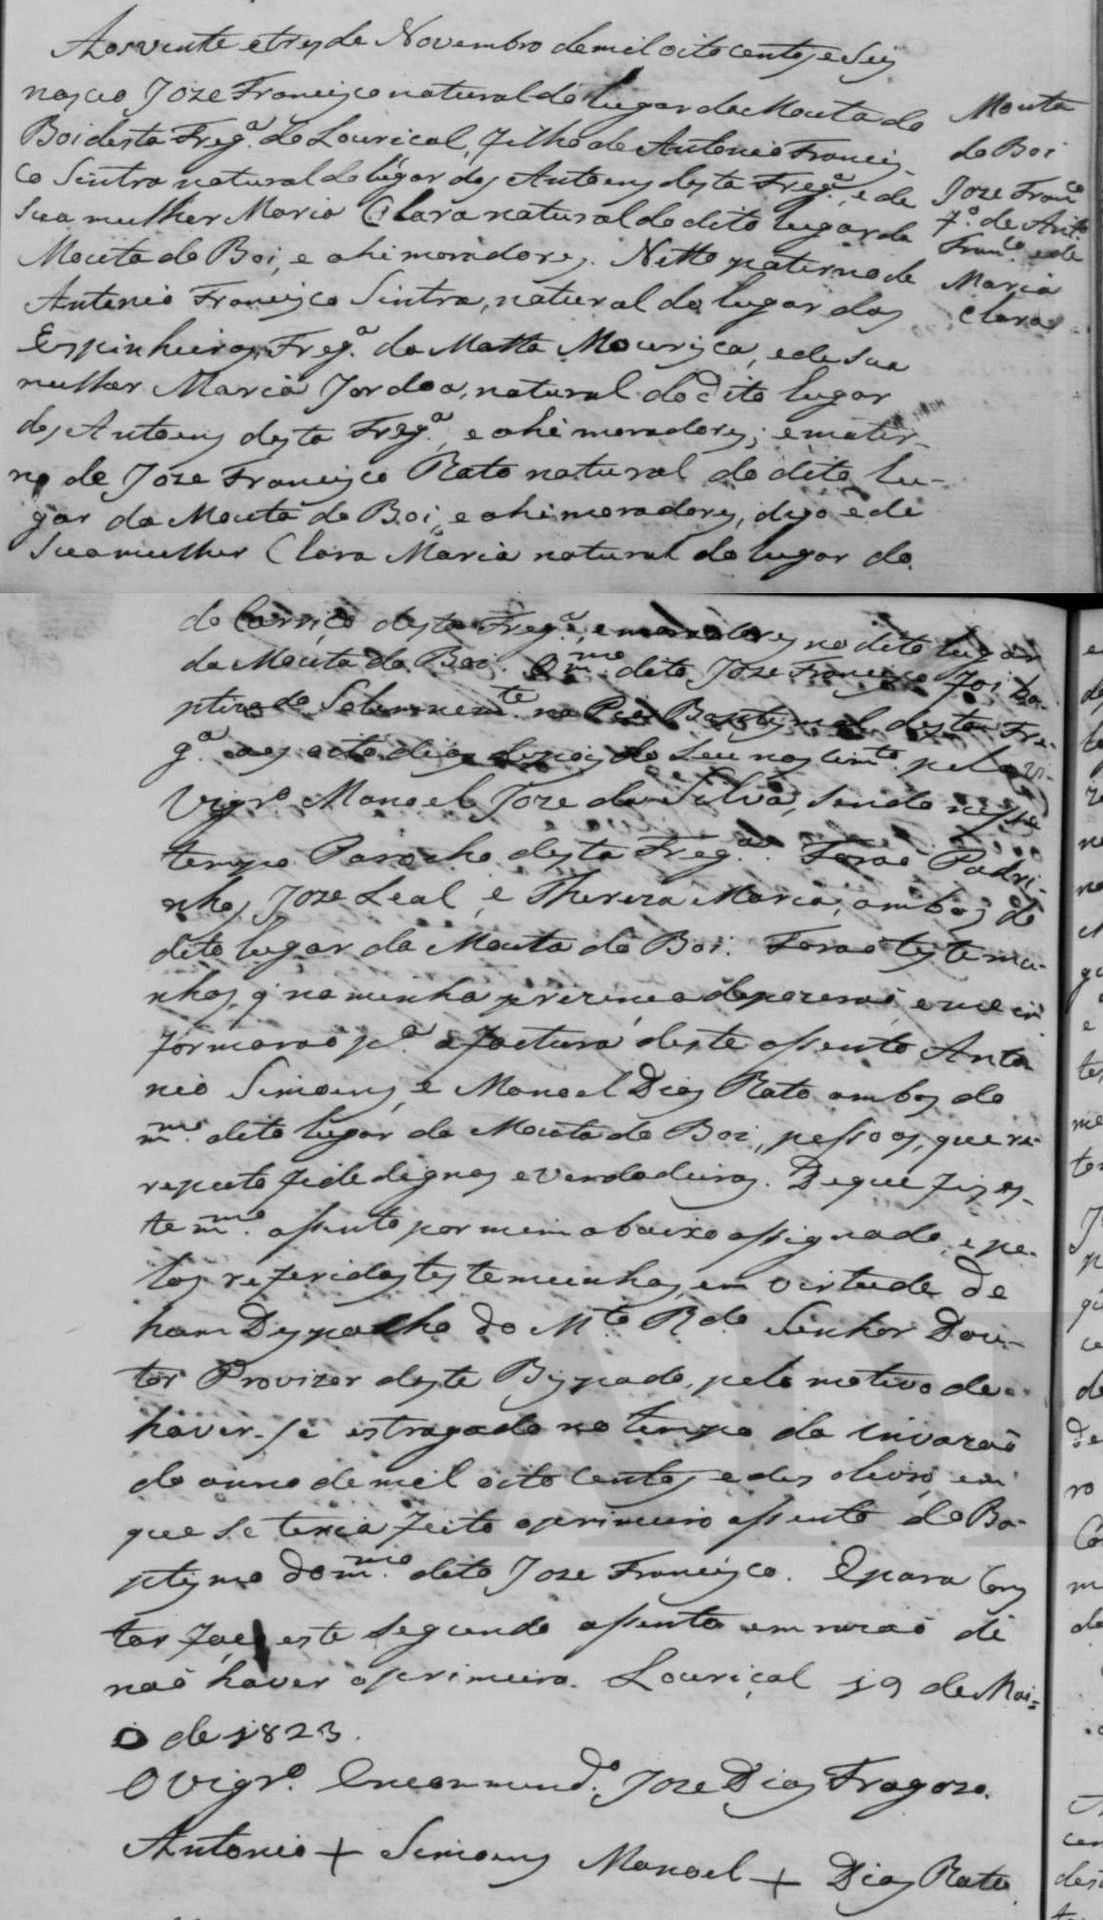 Aos vinte e tres de Novembro de mil oito centos e Seis
nasceo Joze Francisco natural do lugar da Mouta do
Boi desta Freg.ª do Lourical, filho de Antonio Francis-
co Sintra natural do lugar dos Antoens desta Freg.ª, e de
sua mulher Maria Clara natural do dito lugar da
Mouta do Boi, e ahi moradores. Netto paterno de
Antonio Francisco Sintra, natural do lugar dos
Espinheiros, Freg.ª da Matta Mourisca, e de sua
mulher Maria Jordoa, natural do dito lugar
dos Antoens desta Freg.ª, e ahi moradores; e mater-
no de Joze Francisco Rato natural do dito lu-
gar da Mouta do Boi, e ahi moradores, digo e de
Sua mulher Clara Maria natural do lugar do
Mouta
do Boi
Joze Fran.co
f.º de Ant.º
Fran.co e de
Maria
Clara
do Carriço desta Freg.ª, e moradores no dito lugar
da Mouta do Boi. O m.mo dito Joze Francisco foi ba-
ptizado Solemnem.te na Pia Baptismal desta Fre-
g.ª aos oito dias depois do seu nascim.to pelo
Vigr.º Manoel Joze da Silva, sendo nesse
tempo Parocho desta Freg.ª. Forão Padri-
nhos Joze Leal, e Thereza Maria, ambos do
dito lugar da Mouta do Boi. Forão testemu-
nhas, q' na minha prezença depozerão, e me in
formarão p.ª a factura deste assento Anto
nio Simoens, e Manoel Dias Rato ambos do
m.mo dito lugar da Mouta do Boi, pessoas, que re-
reputo fidedignas e verdadeiras. De que fiz es-
te m.mo assento por mim abaixo assignado, e pe-
las referidas testemunhas, em virtude de
hum Despacho do M.to R.do Senhor Dou-
tor Provizor deste Bispado, pelo motivo de
haver-se estragado no tempo da invazão
do anno de mil oito centos e dez o livro, em
que se teria feito o primeiro assento do Ba-
ptismo do m.mo dito Joze Francisco. E para Cons
tar faço este segundo assento em razão de
não haver o primeiro. Louriçal 19 de Mai=
o de 1823.
O Vigr.º Encommend.º Joze Dias Fragozo.
Antonio + Simoens Manoel + Dias Rato.